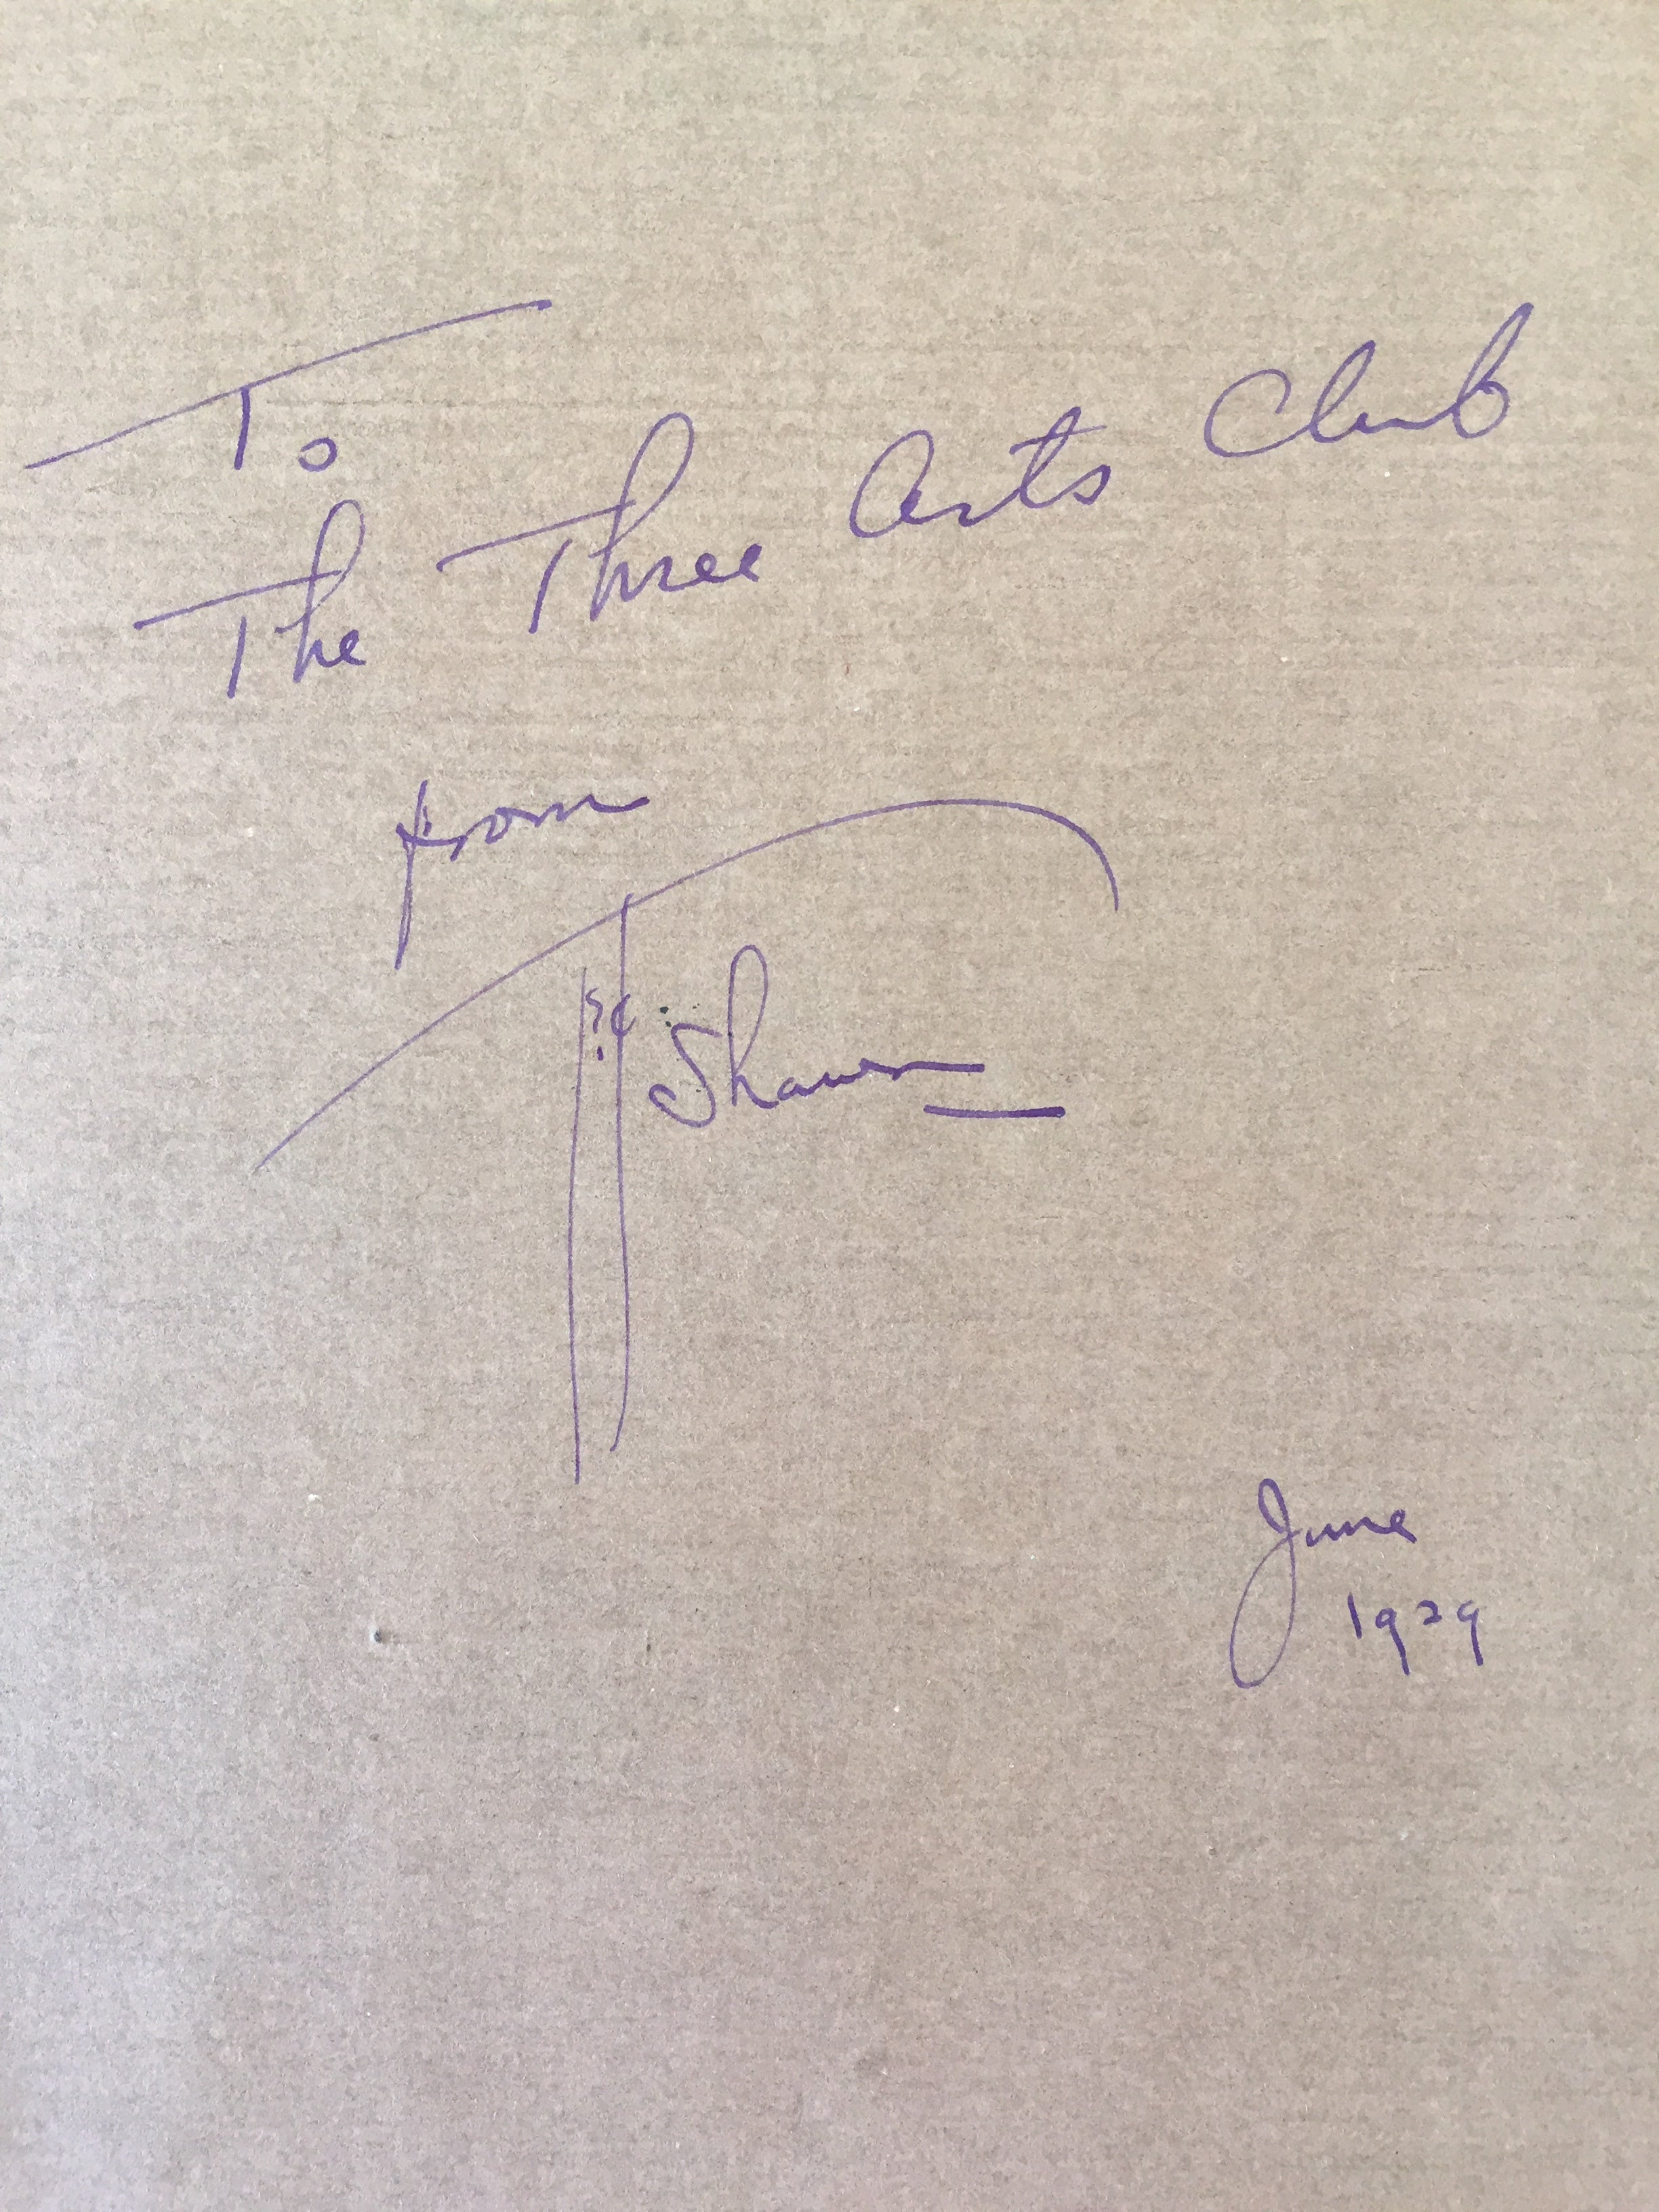 To
The Three Arts Club
from
Shawn
June
1929